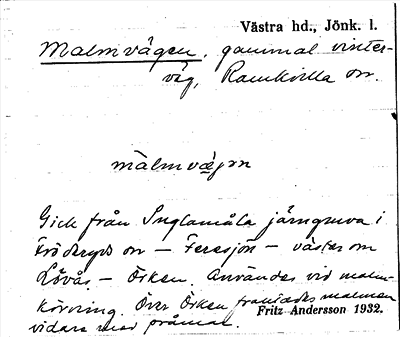 Västra hd., Jönk. l.
Malmvägen, gammal vinter-
väg, Ramkvilla sn.
màlmvæ̀gən
Gick från Inglamåla järngruva i
Fröderyds sn – Feresjön – väster om
Lövås – Örken. Användes vid malm-
körning. Över Örken fraktades malmen
vidare med pråmar.
Fritz Andersson 1932.